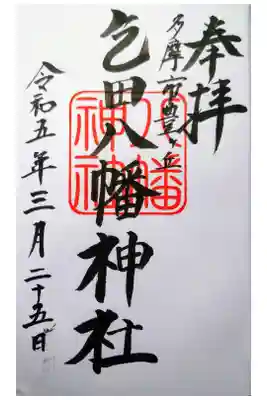 奉拝
多摩市豊ヶ丘
乞田八幡神社
八幡神社
令和五年三月二十五日